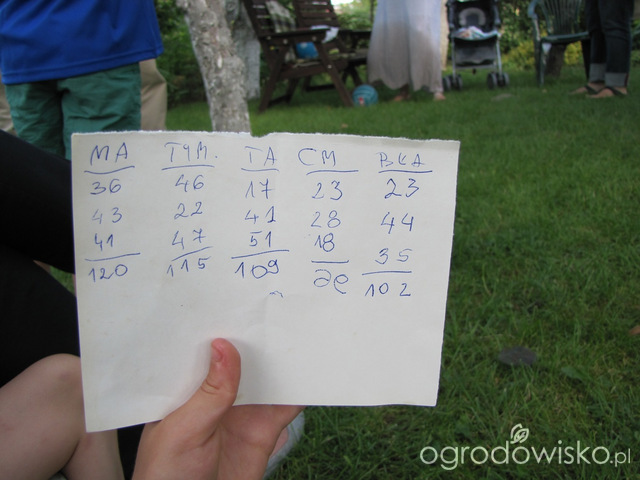 MA TYM. TA CM BKA
36 46 17 23 23
43 22 41 28 44
41 47 51 18 35
120 115 109 102
ogrodowisko.pl